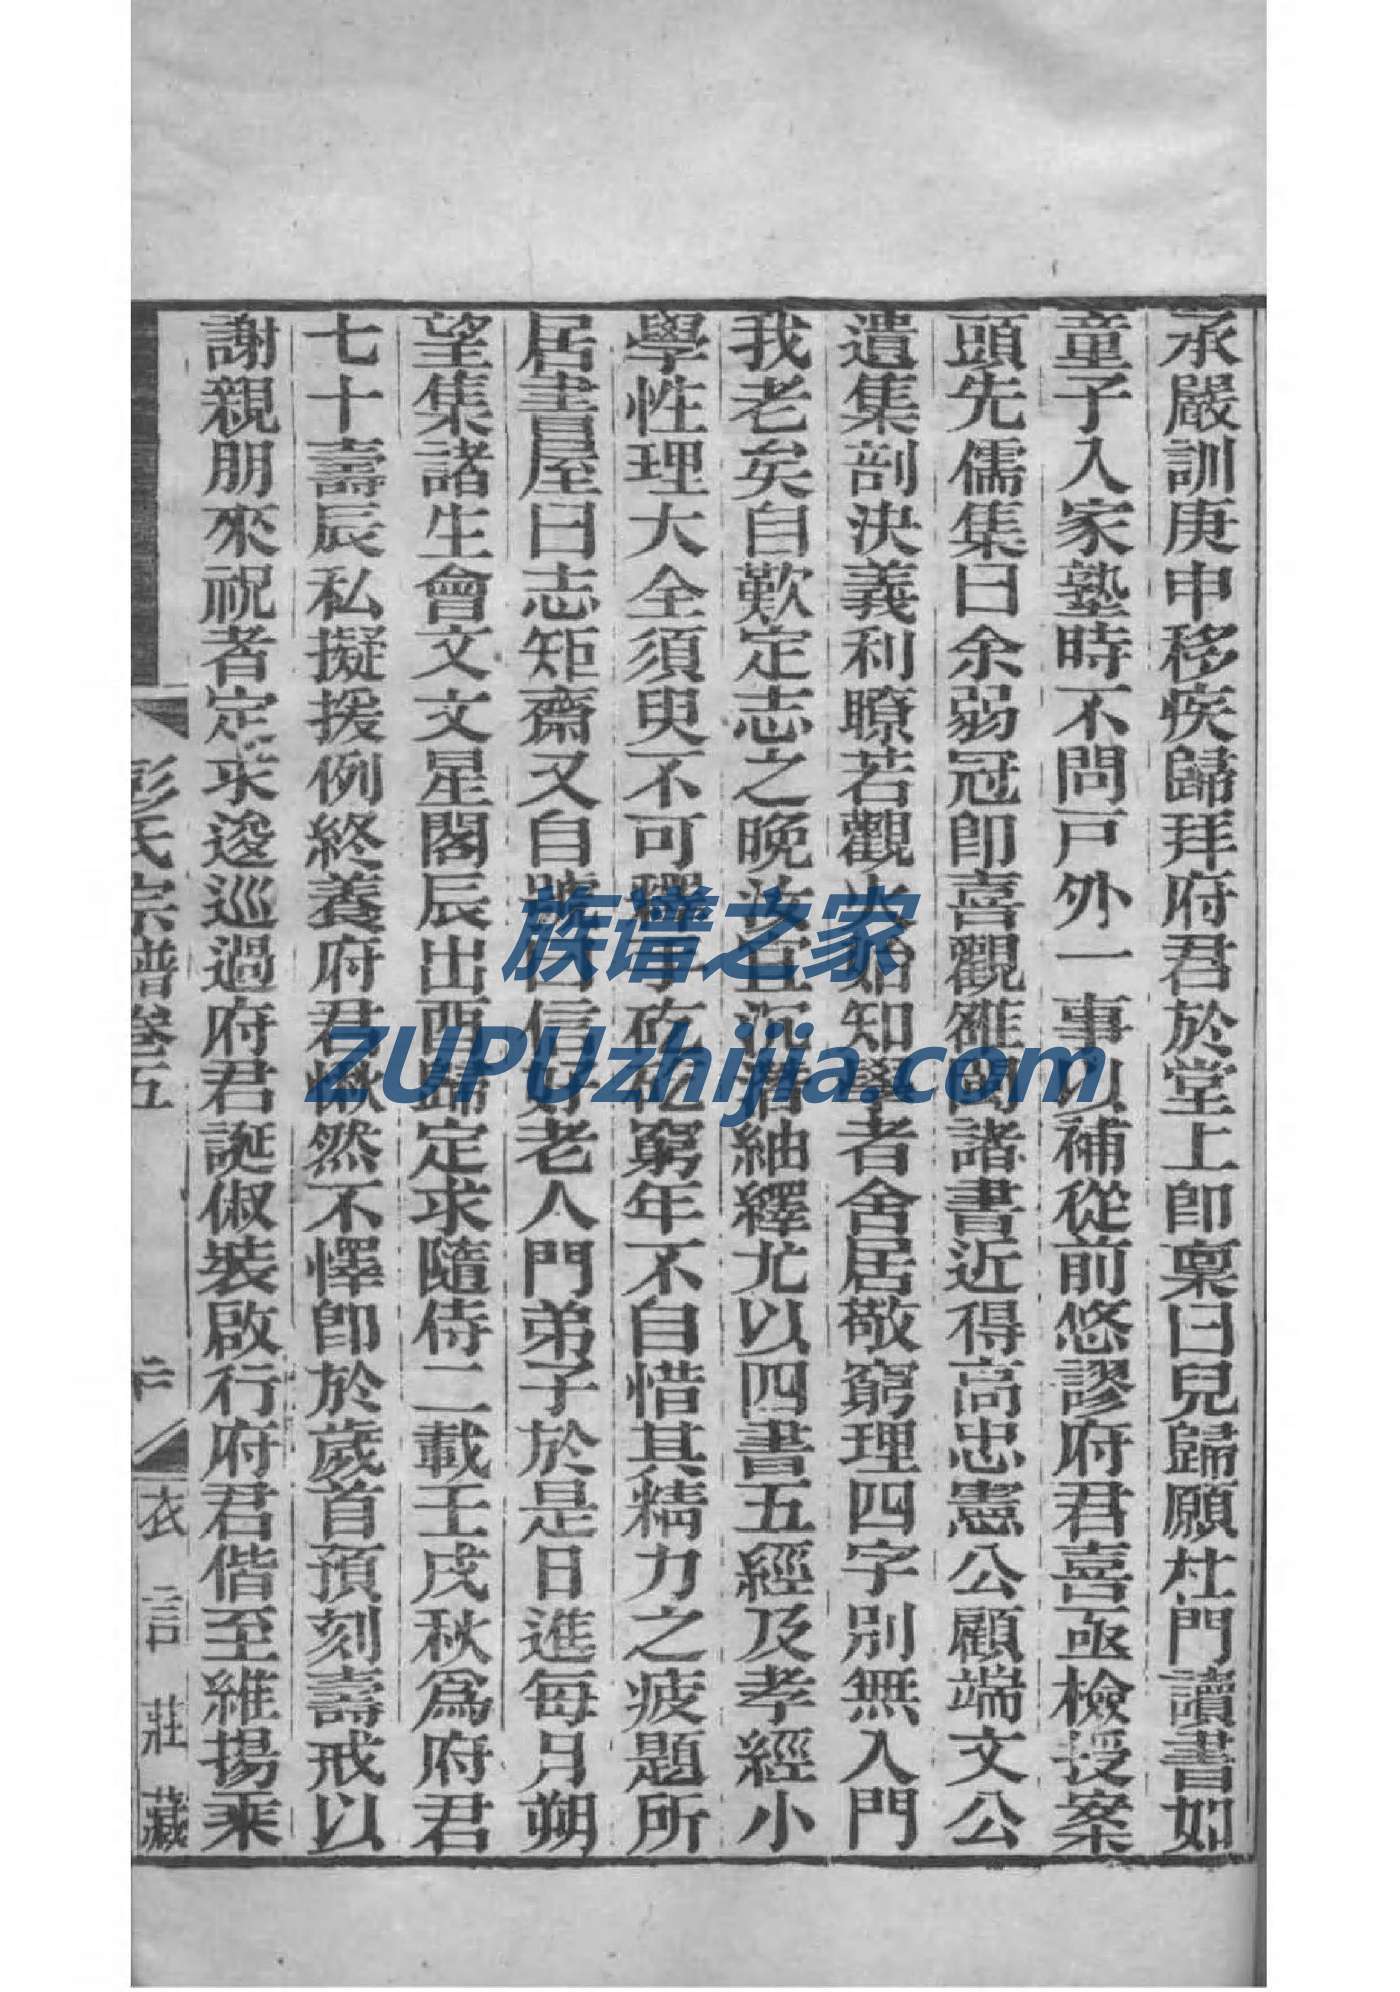 承嚴訓庚申移疾歸拜府君於堂上卽稟曰兒歸願杜門讀書如
童子入家塾時不問戸外一事以補從前悠謬府君喜亟檢授案
頭先儒集曰余弱冠卽喜觀雒閩諸書近得高忠憲公顧端文公
遺集剖決義利瞭若觀火始知學者舍居敬窮理四字別無入門
我老矣自歎定志之晚汝宜沉潛紬繹尤以四書五經及孝經小
學性理大全須臾不可釋手矻矻窮年不自惜其精力之疲題所
居書屋曰志矩齋又自號曰信好老人門弟子於是日進每月朔
望集諸生會文文星閣辰出酉歸定求隨侍二載壬戌秋爲府君
七十壽辰私擬援例終養府君愀然不懌卽於歲首預刻壽戒以
謝親朋來祝者定求逡巡過府君誕俶裝啟行府君偕至維揚乘
彭氏宗譜卷五
衣言莊藏
族谱之家
ZUPUzhijia.com